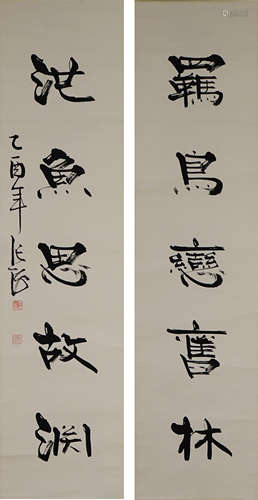 羈鳥戀舊林
池魚思故渊
乙酉年张海